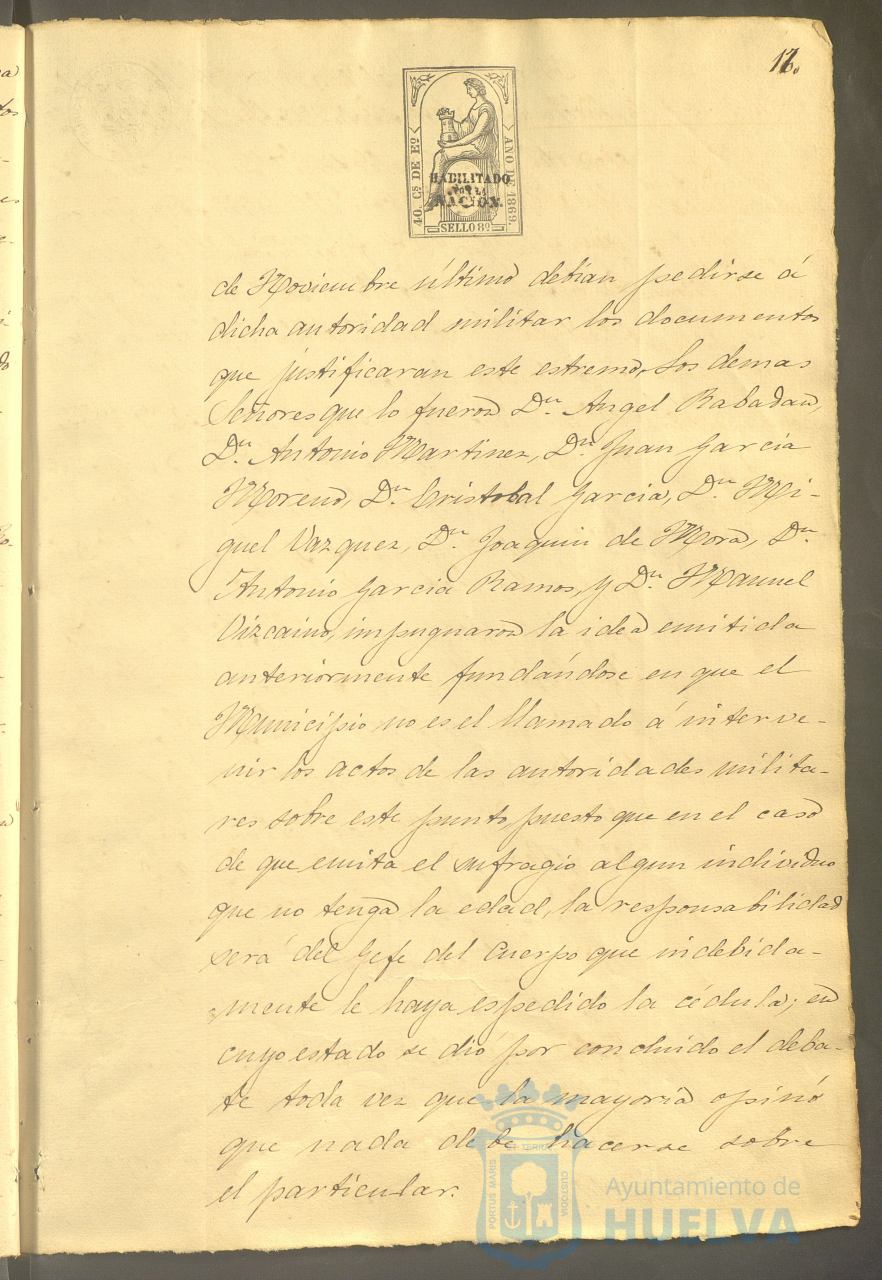 12.
40. Cs DE Eo
AÑO DE 1869.
HABILITADO
POR LA
NACION.
SELLO 8º
de Noviembre último debian pedirse á
dicha autoridad militar los documentos
que justificaran este estremo, Los demas
Señores que lo fueron Dn. Angel Rabadan,
Dn. Antonio Martinez, Dn. Juan Garcia
Moreno, Dn. Cristobal Garcia, Dn. Mi-
guel Vazquez, Dn. Joaquin de Mora, Dn.
Antonio Garcia Ramos, y Dn. Manuel
Vizcaino, impugnaron la idea emitida
anteriormente fundándose en que el
Municipio no es el llamado á interve-
nir los actos de las autoridades milita-
res sobre este punto, puesto que en el caso
de que emita el sufragio algun individuo
que no tenga la edad, la responsabilidad
será del Gefe del Cuerpo que indebida-
mente le haya espedido la cédula; en
cuyo estado se dió por concluido el deba-
te toda vez que la mayoria opinó
que nada debe hacerse sobre
el particular.
PORTUS MARIS
ET TERRÆ
CUSTODIA
Ayuntamiento de
HUELVA